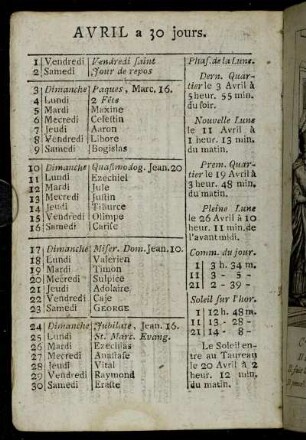 AVRIL a 30 jours.
1 Vendredi Vendredi saint
2 Samedi Jour de repos
3 Dimanche Paques, Marc. 16.
4 Lundi 2 Fête
5 Mardi Maxime
6 Mecredi Celestin
7 Jeudi Aaron
8 Vendredi Libore
9 Samedi Bogislas
10 Dimanche Quasimodog. Jean. 20
11 Lundi Ezechiel
12 Mardi Jule
13 Mecredi Justin
14 Jeudi Tiburce
15 Vendredi Olimpe
16 Samedi Carise
17 Dimanche Miser. Dom. Jean. 10.
18 Lundi Valerien
19 Mardi Timon
20 Mecredi Sulpice
21 Jeudi Adolaire
22 Vendredi Caje
23 Samedi GEORGE
24 Dimanche Jubilate, Jean. 16.
25 Lundi St. Marc. Evang.
26 Mardi Ezechias
27 Mecredi Anastase
28 Jeudi Vital
29 Vendredi Raymond
30 Samedi Eraste
Phas. de la Lune.
Dern. Quar-
tier le 3 Avril à
5 heur. 55 min.
du soir.
Nouvelle Lune
le 11 Avril à
1 heur. 13 min.
du matin.
Prem. Quar-
tier le 19 Avril à
3 heur. 48 min.
du matin.
Pleine Lune
le 26 Avril à 10
heur. 11 min. de
l'avant midi.
Comm. du jour.
1 3 h. 34 m.
11 3 - 5 -
21 2 - 39 -
Soleil sur l'hor.
1 12 h. 48 m.
11 13 - 28 -
21 14 - 8 -
Le Soleil en-
tre au Taureau
le 20 Avril à 2
heur. 12 min.
du matin.